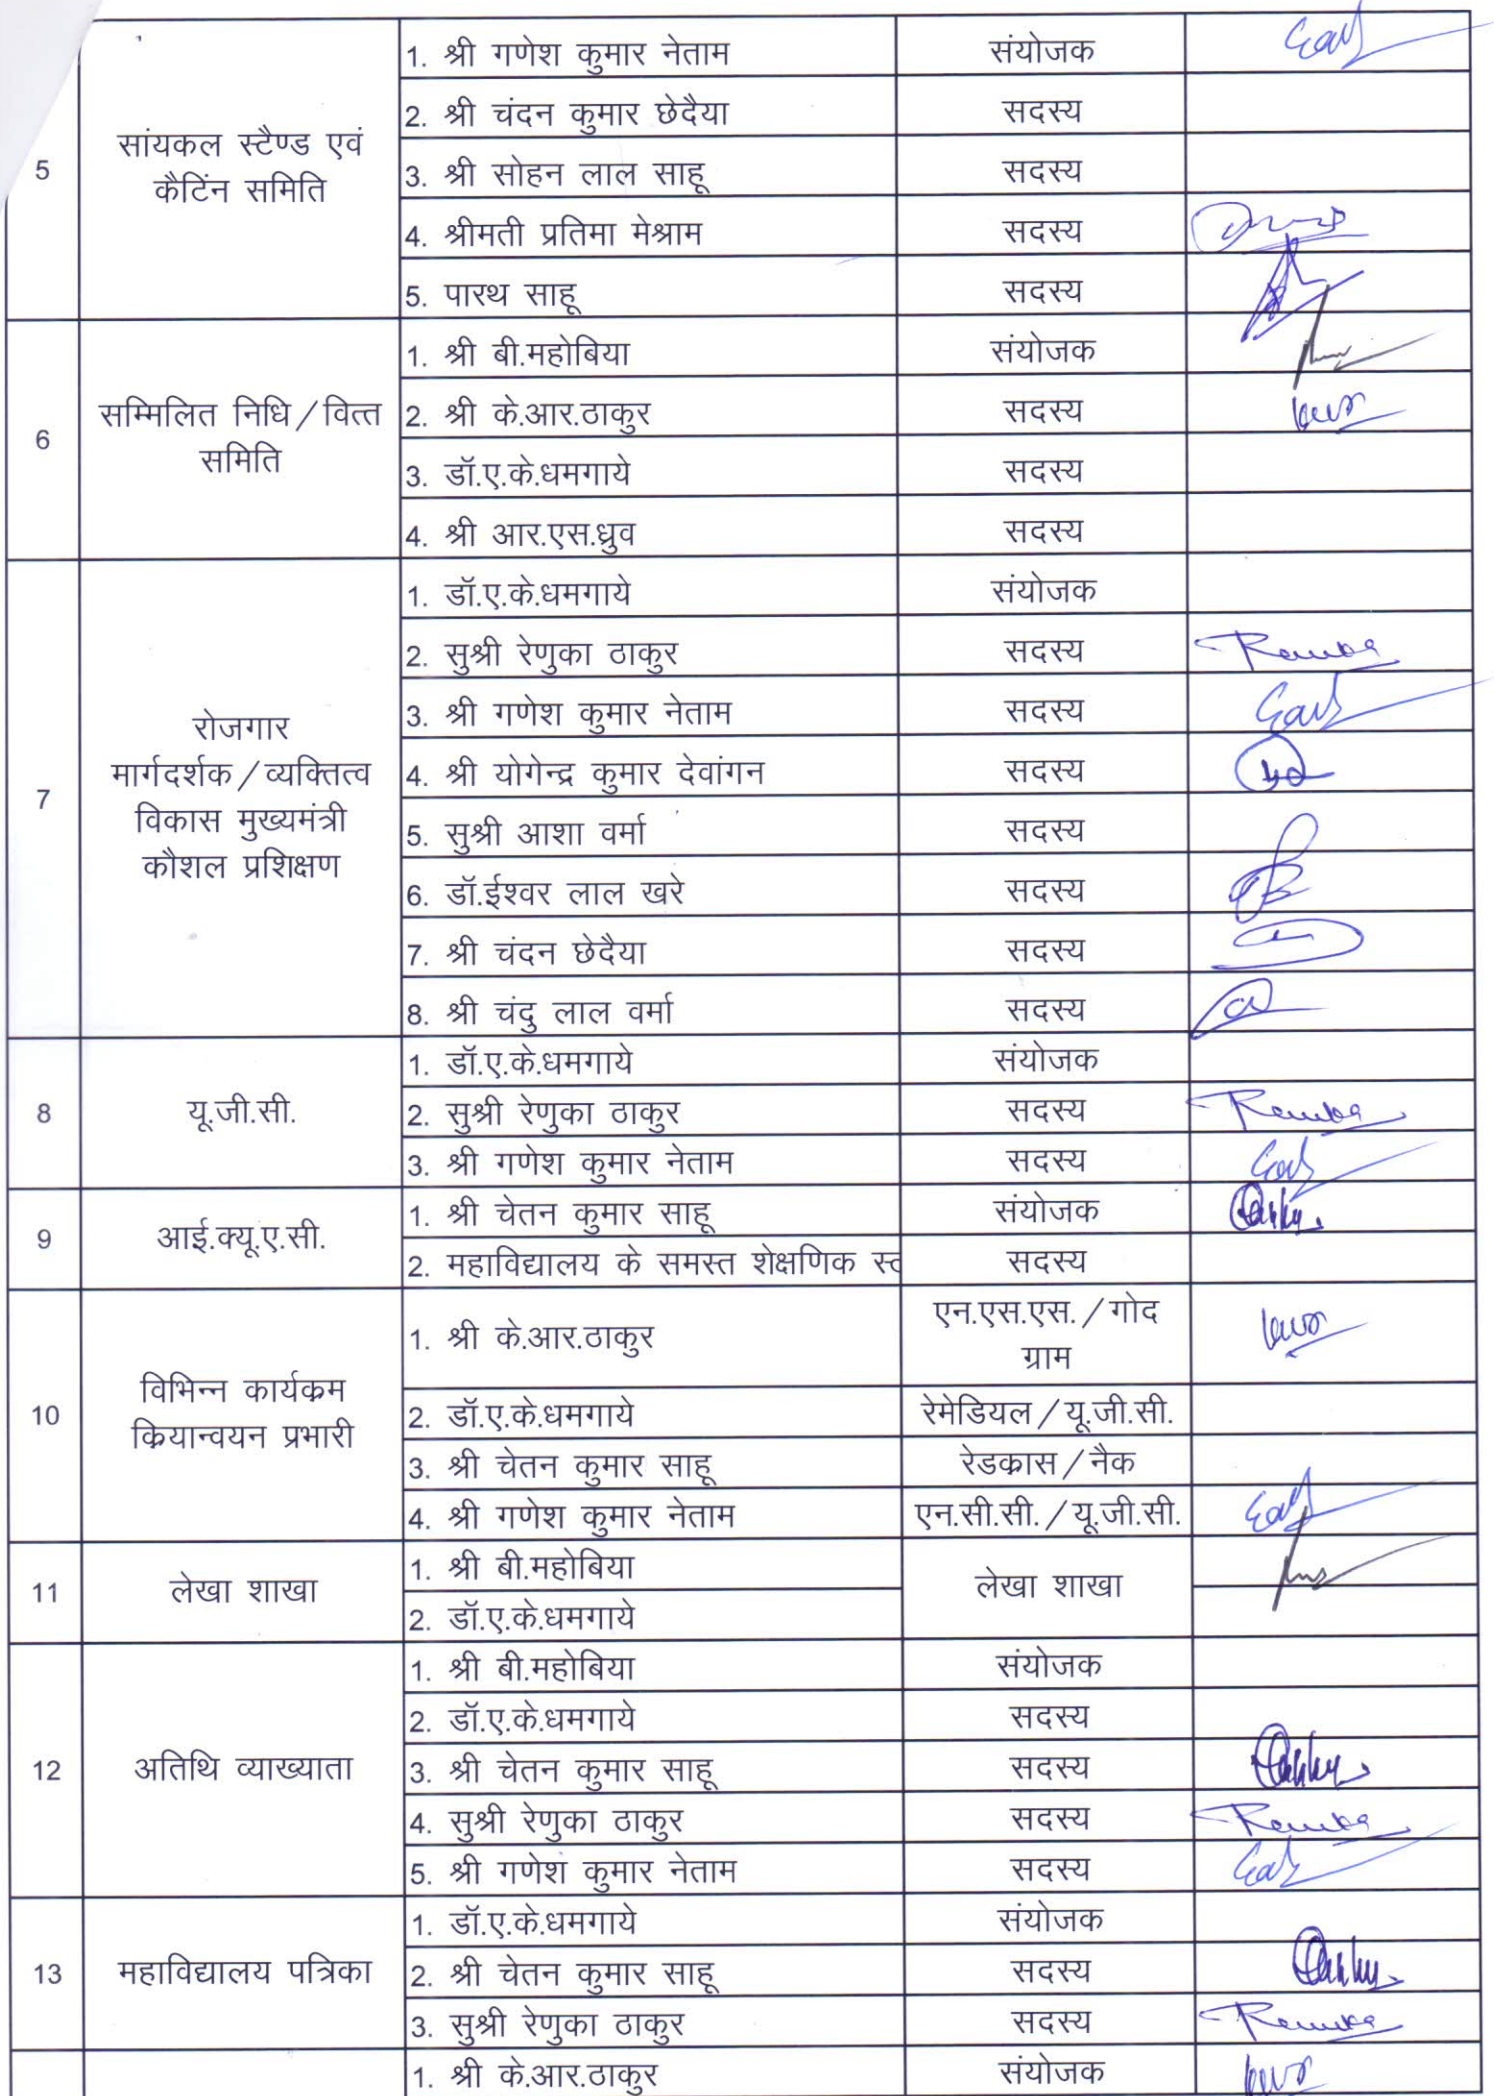 5
सांयकल स्टैण्ड एवं
कैटिंन समिति
1. श्री गणेश कुमार नेताम संयोजक
2. श्री चंदन कुमार छेदैया सदस्य
3. श्री सोहन लाल साहू सदस्य
4. श्रीमती प्रतिमा मेश्राम सदस्य
5. पारथ साहू सदस्य
6
सम्मिलित निधि/वित्त
समिति
1. श्री बी.महोबिया संयोजक
2. श्री के.आर.ठाकुर सदस्य
3. डॉ.ए.के.धमगाये सदस्य
4. श्री आर.एस.ध्रुव सदस्य
7
रोजगार
मार्गदर्शक/व्यक्तित्व
विकास मुख्यमंत्री
कौशल प्रशिक्षण
1. डॉ.ए.के.धमगाये संयोजक
2. सुश्री रेणुका ठाकुर सदस्य
3. श्री गणेश कुमार नेताम सदस्य
4. श्री योगेन्द्र कुमार देवांगन सदस्य
5. सुश्री आशा वर्मा सदस्य
6. डॉ.ईश्वर लाल खरे सदस्य
7. श्री चंदन छेदैया सदस्य
8. श्री चंदु लाल वर्मा सदस्य
8
यू.जी.सी.
1. डॉ.ए.के.धमगाये संयोजक
2. सुश्री रेणुका ठाकुर सदस्य
3. श्री गणेश कुमार नेताम सदस्य
9
आई.क्यू.ए.सी.
1. श्री चेतन कुमार साहू संयोजक
2. महाविद्यालय के समस्त शेक्षणिक सदस्य
10
विभिन्न कार्यक्रम
क्रियान्वयन प्रभारी
1. श्री के.आर.ठाकुर एन.एस.एस./गोद
ग्राम
2. डॉ.ए.के.धमगाये रेमेडियल/यू.जी.सी.
3. श्री चेतन कुमार साहू रेडक्रास/नैक
4. श्री गणेश कुमार नेताम एन.सी.सी./यू.जी.सी.
11
लेखा शाखा
1. श्री बी.महोबिया
लेखा शाखा
2. डॉ.ए.के.धमगाये
12
अतिथि व्याख्याता
1. श्री बी.महोबिया संयोजक
2. डॉ.ए.के.धमगाये सदस्य
3. श्री चेतन कुमार साहू सदस्य
4. सुश्री रेणुका ठाकुर सदस्य
5. श्री गणेश कुमार नेताम सदस्य
13
महाविद्यालय पत्रिका
1. डॉ.ए.के.धमगाये संयोजक
2. श्री चेतन कुमार साहू सदस्य
3. सुश्री रेणुका ठाकुर सदस्य
1. श्री के.आर.ठाकुर संयोजक